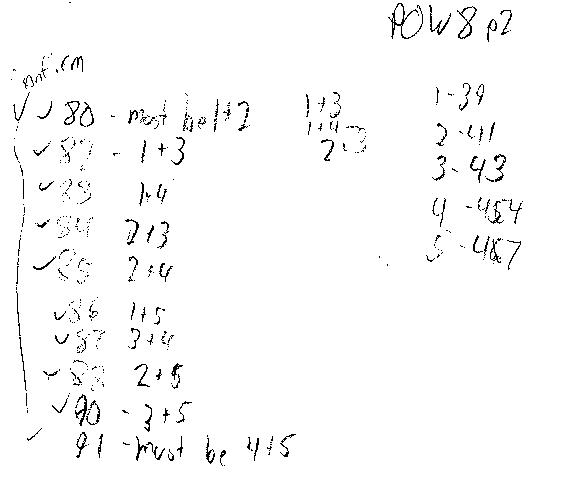 POW 8 p2
✓ ✓ 80 - must be 1+2
✓ 82 - 1+3
✓ 83 1+4
✓ 84 2+3
✓ 85 2+4
✓ 86 1+5
✓ 87 3+4
✓ 88 2+5
✓ 90 - 3+5
✓ 91 - must be 4+5
1+3
1+4
2+3
1-39
2-41
3-43
4 -44
5 -47